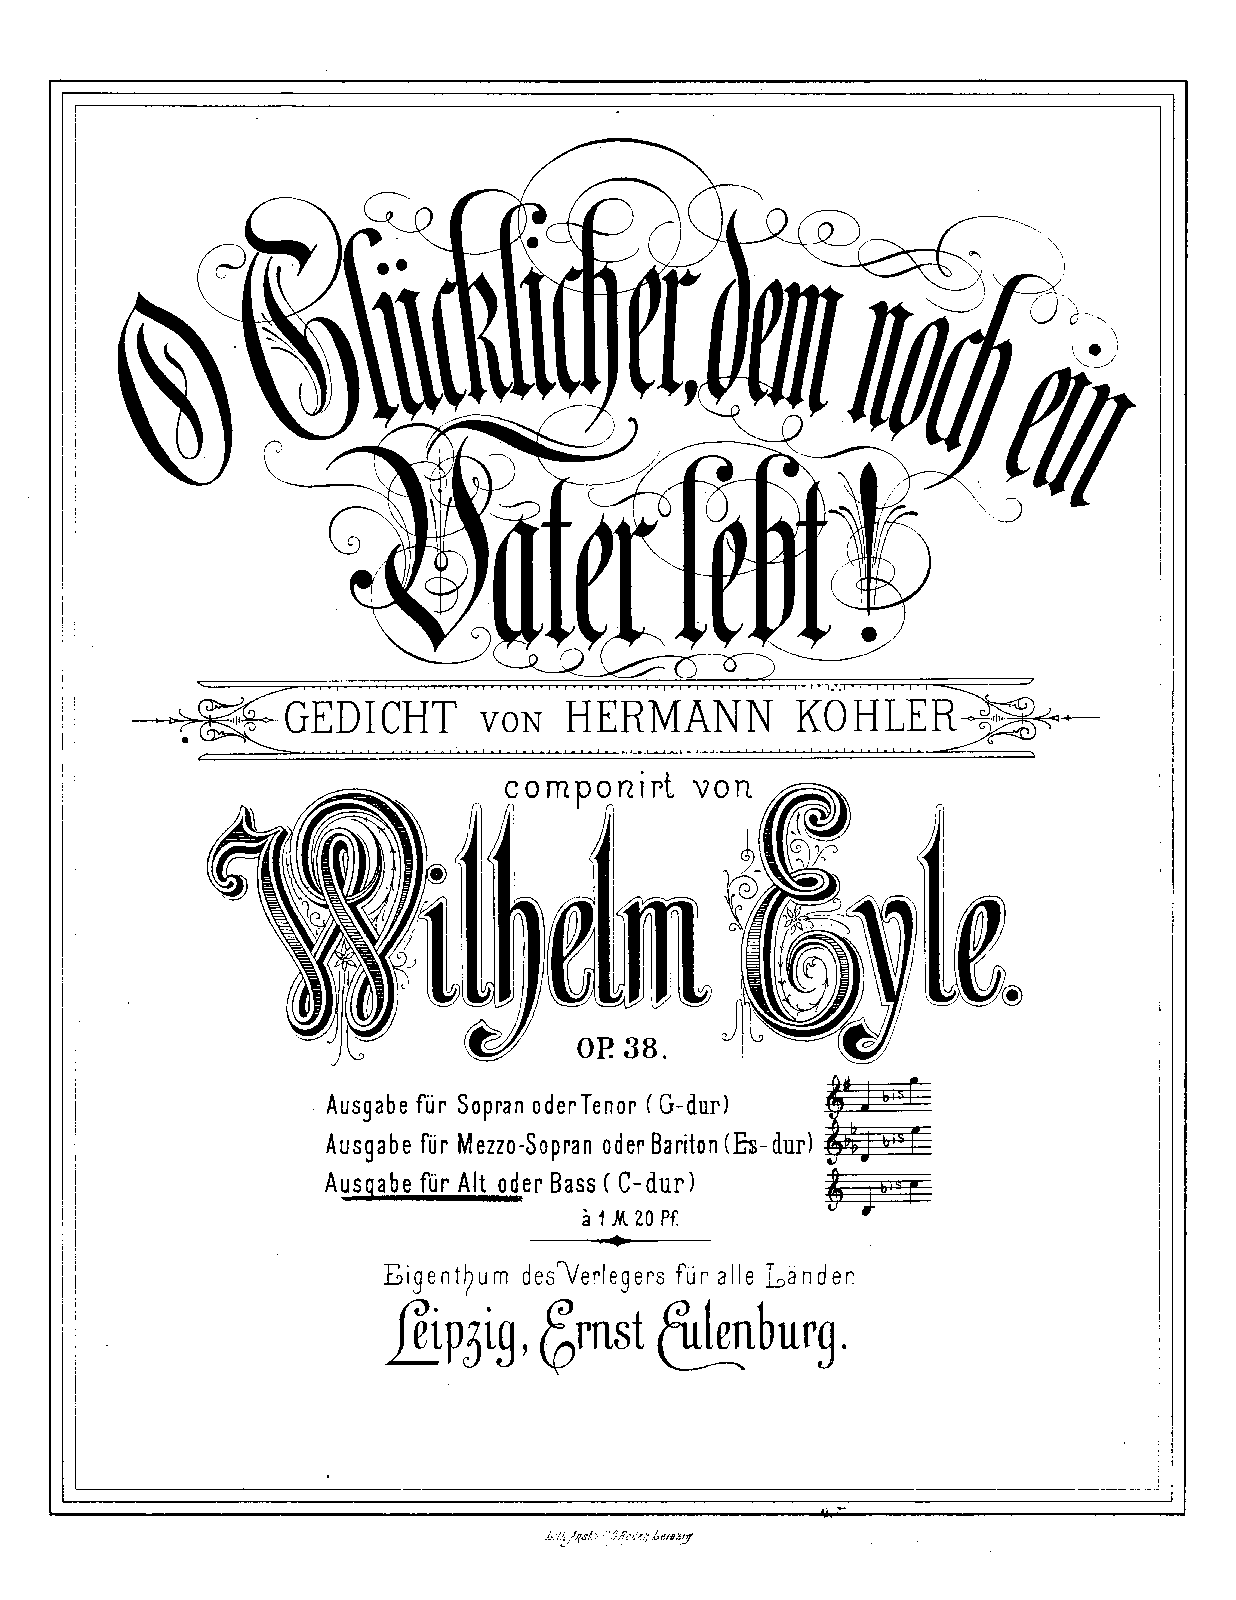 O Glücklicher, dem noch ein
Vater lebt!
GEDICHT VON HERMANN KOHLER
componirt von
Wilhelm Eyle.
OP. 38.
Ausgabe für Sopran oder Tenor (G-dur)
bis
Ausgabe für Mezzo-Sopran oder Bariton (Es-dur)
bis
Ausgabe für Alt oder Bass (C-dur)
bis
à 1 M. 20 Pf.
Eigenthum des Verlegers für alle Länder.
Leipzig, Ernst Eulenburg.
Lith. Anst.